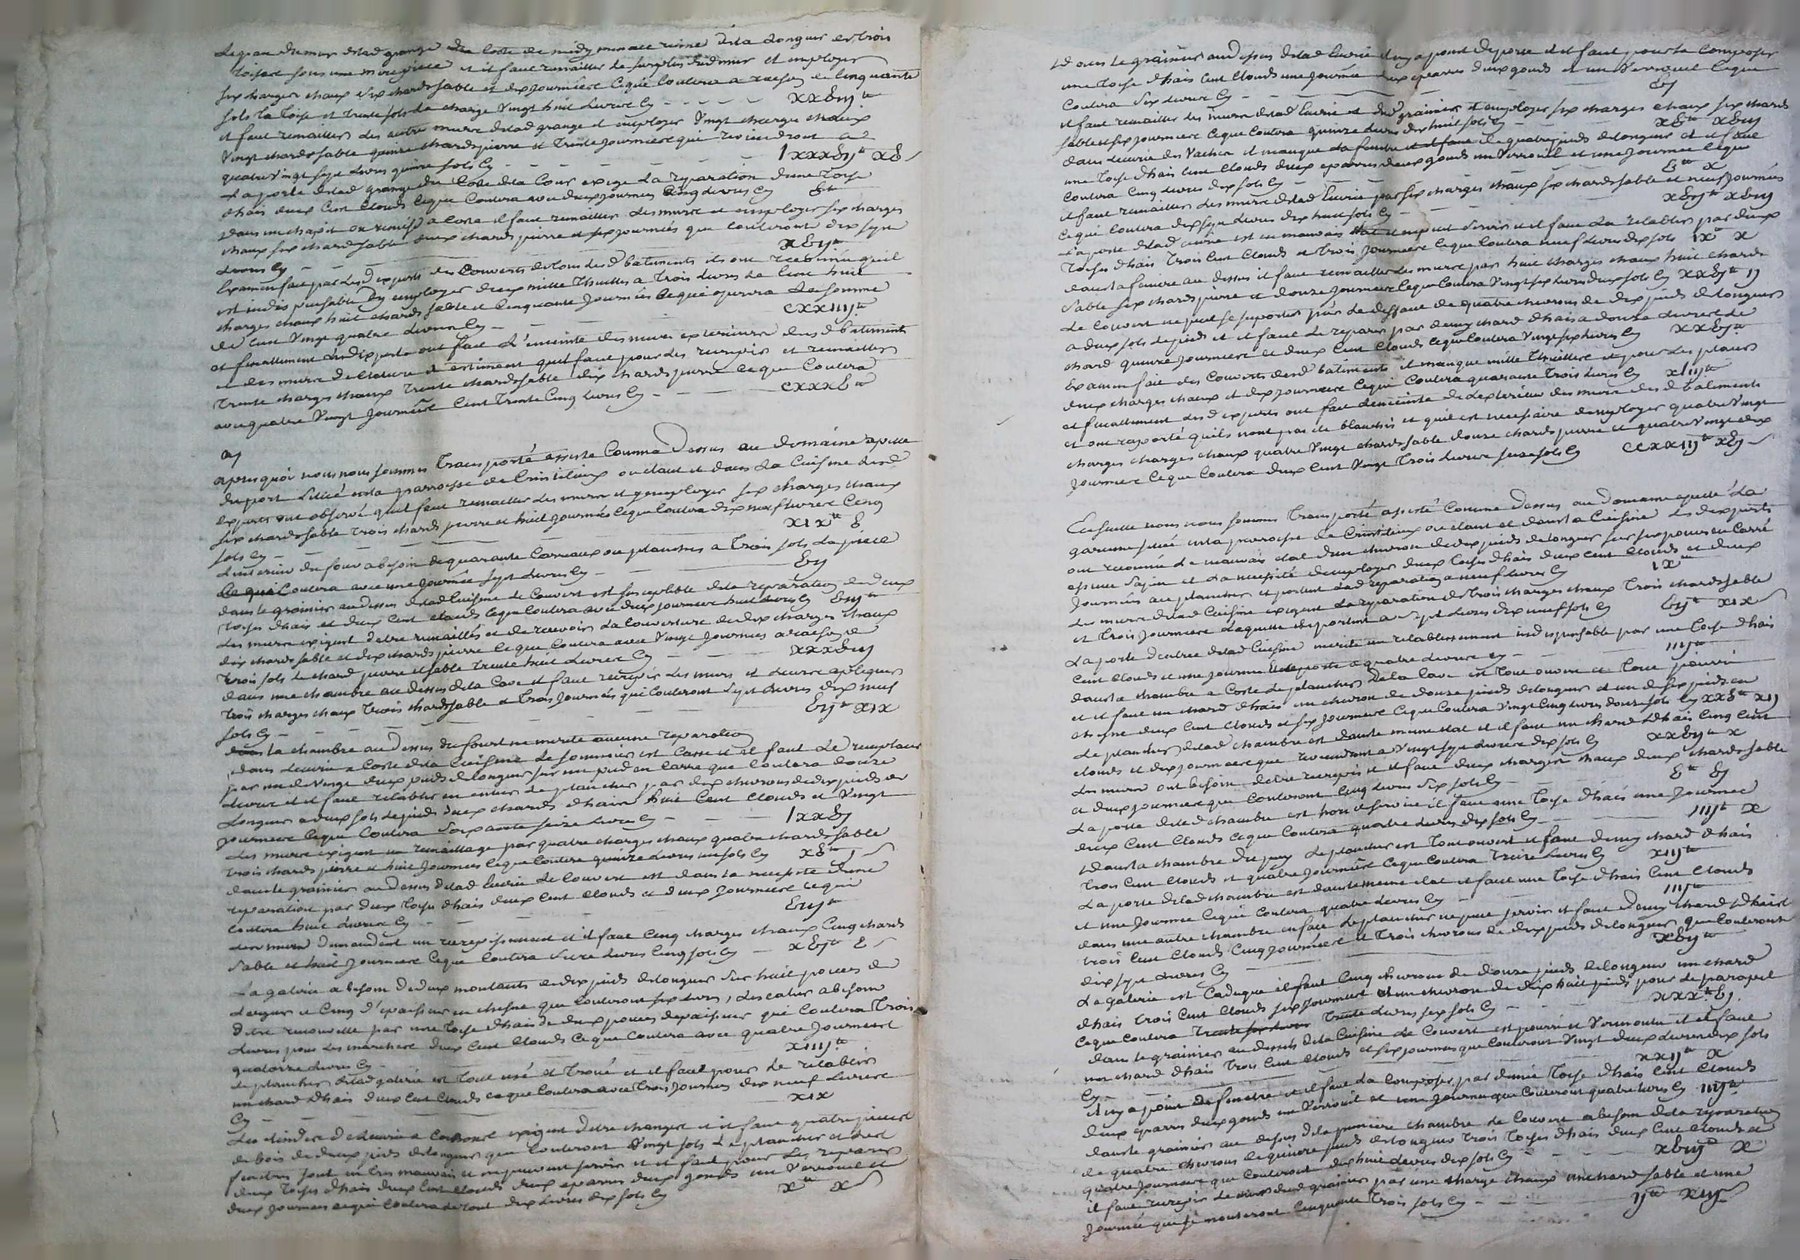 Le grand mur de lad grange du coste de midy menace ruine de la longueur de trois
toises sous une mere piece et il faut remailler le surplus dud mur et employer
six charges chaux six chards sable et dix journées ce qui coutera a raison de cinquante
sols la toise et trente sols la charge vingt huit livres Cy - - - - xxviij lt
il faut remailler les autres murs de lad grange et employer vingt charges chaux
vingt chards sable quinze chards pierre et trente journées qui reviendront a
quatre vingt sept livres quinze sols Cy - - - lxxxvij lt xv s
La porte de lad grange du coste de la Cour exige la reparation d'une toise
d'hais deux cent clouds ce qui coutera avec deux journées cinq livres Cy v lt
dans un chapit ou remise a coste il faut remailler les murs et employer six charges
chaux six chards sable deux chards pierre et six journées que couteront dix sept
livres Cy - - xvij lt
Examen fait par lesd experts des couverts de tous lesd batiments ils ont reconnu qu'il
est indispensable d'y employer deux mille thuilles a trois livres le cent huit
charges chaux huit chards sable et cinquante journées ce qui operera la somme
de cent vingt quatre livres Cy - - cxxiiij lt
et finallement lesd experts ont fait l'enceinte des murs exterieurs desd batiments
et des murs de cloture et estiment qu'il faut pour les recrepir et remailler
trente charges chaux trente chards sable dix chards pierre ce que coutera
avec quatre vingt journées cent trente cinq livres Cy - - cxxxv lt
apres quoi nous nous sommes transporté assisté comme dessus au domaine apellé
du port situé en la parroisse de Cuisiliux ou etant et dans la cuisine lesd
experts ont observé qu'il faut remailler les murs et y employer six charges chaux
six chards sable trois chards pierre et huit journées ce que coutera dix neuf livres cinq
sols Cy - xix lt v
L'interieur du four a besoin de quarante carreaux ou planches a trois sols la piece
ce qui coutera avec une journée sept livres Cy - - vij
dans le grainier au dessus de lad cuisine le couvert est susceptible de la reparation de deux
toises d'hais et deux cent clouds ce que coutera avec deux journées huit livres Cy viij lt
Les murs exigent d'etre remaillés et de recevoir la couverture de dix charges chaux
dix chards sable et dix chards pierre ce que coutera avec vingt journées a raison de
trois sols le chard pierre et sable trente huit livres Cy - - xxxviij
dans une chambre au dessus de la cave il faut recrepir les murs et y appliquer
trois charges chaux trois chards sable et trois journées qui couteront sept livres dix neuf
sols Cy - - vij lt xix
dans la chambre au dessus du four ne merite aucune reparation
dans l'ecurie a coste de la cuisine le sommier est cassé et il faut le remplacer
par un de vingt deux pieds de longueur sur un pied en carré que coutera douze
livres et il faut retablir en entier le plancher par dix chevrons de dix pieds de
longueur a deux sols le pied deux chards d'hais huit cent clouds et vingt
journées ce que coutera soixante seize livres Cy - - lxxvj
Les murs exigent un remaillage par quatre charges chaux quatre chards sable
trois chards pierre et huit journées ce que coutera quinze livres un sols Cy xv lt j s
dans le grainier au dessus de lad ecurie le couvert est dans la necessité d'une
reparation par deux toises d'hais deux cent clouds et deux journées ce qui
coutera huit livres Cy - viij lt
Les murs demandent un recrepissement et il faut cinq charges chaux cinq chards
sable et huit journées ce que coutera seize livres cinq sols Cy - xvj lt v s
La galerie a besoin de deux montants de dix pieds de longueur sur huit pouces de
largeur et cinq d'epaisseur en chesne que couteront six livres, l'escalier a besoin
d'etre renouvellé par une toise d'hais de deux pouces d'epaisseur qui coutera trois
livres pour les marches deux cent clouds ce que coutera avec quatre journées
quatorze livres Cy - xiiij lt
Le plancher de lad galerie est tout usé et troué et il faut pour le retablir
un chard d'hais deux cent clouds ce que coutera avec trois journées dix neuf livres
Cy - xix
de bois de deux pieds de longueur que couteront vingt sols le plancher et les
fenetres sont en tres mauvais et ne peuvent servir et il faut pour les reparer
deux toises d'hais deux cent clouds deux eparres deux gonds un verrouil et
deux journées ce qui coutera le tout dix livres dix sols Cy x lt x s
Et dans le grainier au dessus de lad ecurie il n'y a point de porte et il faut pour la composer
une toise d'hais cent clouds une journée deux eparres deux gonds et un verrouil ce que
coutera six livres Cy - - vj
il faut remailler les murs de lad ecurie et dud grainier et employer six charges chaux six chards
sable et six journées ce que coutera quinze livres dix huit sols Cy - xv lt xviij
dans l'ecurie des vaches il manque la fenetre de quatre pieds de longueur et il faut
une toise d'hais cent clouds deux eparres deux gonds un verrouil et une journée ce que
coutera cinq livres dix sols Cy - v lt x
il faut remailler les murs de lad ecurie par six charges chaux six chards sable et neuf journées
ce qui coutera dix sept livres dix huit sols Cy - xvij lt xviij
La porte de lad ecurie est en mauvais etat et ne peut servir et il faut la retablir par deux
toises d'hais trois cent clouds et trois journées ce que coutera neuf livres dix sols ix lt x
dans la feniere au dessus il faut remailler les murs par huit charges chaux huit chards
sable six chards pierre et douze journées ce que coutera vingt sept livres deux sols Cy xxvij lt ij
Le couvert ne peut se suporter par le deffaut de quatre chevrons de dix pieds de longueur
a deux sols le pied et il faut le reparer par demy chard d'hais a douze livres le
chard quinze journées et deux cent clouds ce que coutera vingt six livres Cy xxvj lt
Examen fait des couverts desd batiments il manque mille thuilles et pour les placer
deux charges chaux et dix journées ce qui coutera quarante trois livres Cy xliij lt
et finallement lesd experts ont fait l'enceinte de l'exterieur des murs desd batiments
et ont raporté qu'ils n'ont pas été blanchis et qu'il est necessaire d'employer quatre vingt
charges chaux quatre vingt chards sable douze chards pierre et quatre vingt deux
journées ce que coutera deux cent vingt trois livres seize sols Cy ccxxiij lt xvj s
Ensuitte nous nous sommes transporté assisté comme dessus au domaine apellé La
garenne situé en la parroisse de Cuisiliux ou etant et dans la cuisine lesd experts
ont reconnu le mauvais etat d'un chevron de dix pieds de longueur sur six pouces en carré
essence sapin et la necessité d'employer deux toises d'hais deux cent clouds et deux
journées au plancher et portent lad reparation a neuf livres Cy - ix lt
Les murs de lad cuisine exigent la reparation de trois charges chaux trois chards sable
et trois journées laquelle ils portent a sept livres dix neuf sols Cy vij lt xix s
La porte d'entrée de lad cuisine merite un retablissement indispensable par une toise d'hais
cent clouds et une journée et se porte a quatre livres Cy - iiij lt
dans la chambre a coste le plancher de la cave est tout ouvert et tout pourri
et il faut un chard d'hais un chevron de douze pieds de longueur et un de six pieds en
chesne deux cent clouds et six journées ce que coutera vingt cinq livres douze sols Cy xxv lt xij
Le plancher de lad chambre est dans le meme etat et il faut un chard d'hais cinq cent
clouds et dix journées que reviendront a vingt sept livres dix sols Cy xxvij lt x
Les murs ont besoin d'etre recrepis et il faut deux charges chaux deux chards sable
et deux journées que couteront cinq livres six sols Cy - v lt vj
La porte de lad chambre est hors de service il faut une toise d'hais une journée
deux cent clouds ce que coutera quatre livres dix sols Cy - iiij lt x
Et dans la chambre du puy le plancher est tout ouvert il faut demy chard d'hais
trois cent clouds et quatre journées ce que coutera treize livres Cy xiij lt
La porte de lad chambre est dans le meme etat il faut une toise d'hais cent clouds
et une journée ce qui coutera quatre livres Cy - iiij lt
dans une autre chambre en face le plancher ne peut servir et faut demy chard d'hais
trois cent clouds cinq journées et trois chevrons de dix pieds de longueur que couteront
dix sept livres Cy - xvij lt
La galerie est caduque il faut cinq chevrons de douze pieds de longueur un chard
d'hais trois cent clouds six journées et un chevron de dix huit pieds pour le parapel
ce que coutera trente livres six sols Cy - xxx lt vj
dans le grainier au dessus de la cuisine le couvert est pourri et vermoulu et il faut
un chard d'hais trois cent clouds et six journées que couteront vingt deux livres dix sols
Cy - xxij lt x
il n'y a point de fenetre et il faut la composer par demie toise d'hais cent clouds
deux eparres deux gonds un verrouil et une journée que couteront quatre livres Cy iiij lt
dans le grainier au dessus de la premiere chambre le couvert a besoin de la reparation
de quatre chevrons de quinze pieds de longueur trois toises d'hais deux cent clouds et
quatre journées que couteront dix huit livres dix sols Cy - xviij lt x
il faut recrepir les murs dud grainier par une charge chaux un chard sable et une
journée que se monteront cinquante trois sols Cy - - ij lt xiij s